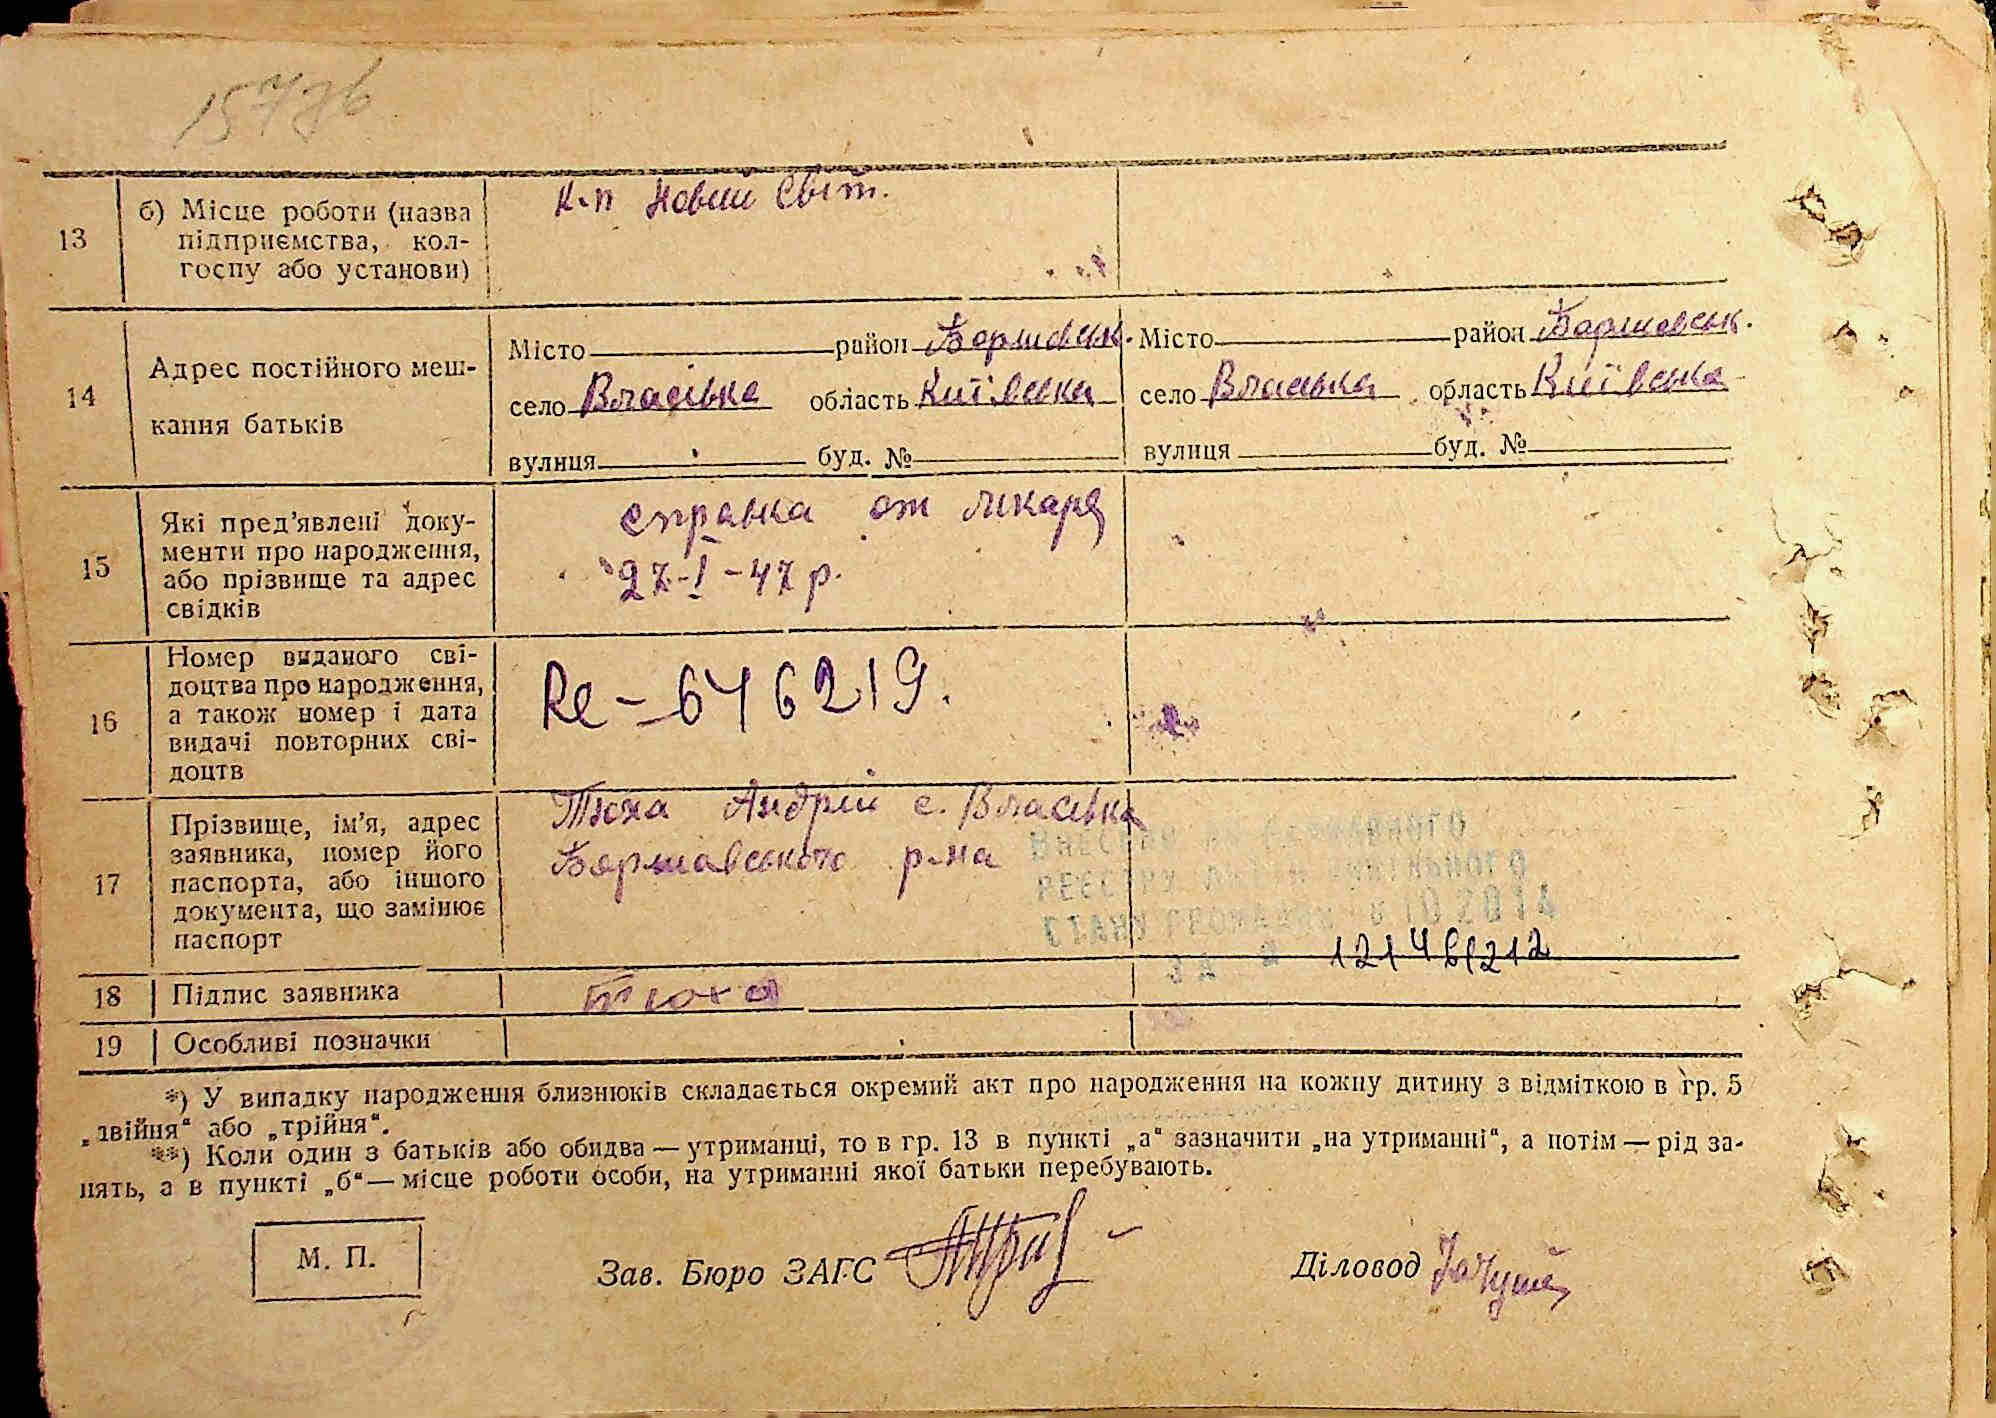 13
б) Місце роботи (назва
підприємства, кол-
госпу або установи)
К-п Новий Світ.
14
Адрес постійного меш-
кання батьків
Місто район Боришівськ.
село Власівка область Київська
вулиця буд. №
Місто район Баришевськ.
село Власівка область Київська
вулиця буд. №
15
Які пред’явлені доку-
менти про народження,
або прізвище та адрес
свідків
справка от лікаря
27-I-47 р.
16
Номер виданого сві-
доцтва про народження,
а також номер і дата
видачі повторних сві-
доцтв
Re-646219.
17
Прізвище, ім’я, адрес
заявника, номер його
паспорта, або іншого
документа, що замінює
паспорт
Тюха Андрій с. Власівка
р-на
ВНЕСЕНО ДО ДЕРЖАВНОГО
РЕЄСТРУ АКТІВ ЦИВІЛЬНОГО
СТАНУ ГРОМАДЯН 10 2014
ЗА №
18
Підпис заявника
Тюха
19
Особливі позначки
*) У випадку народження близнюків складається окремий акт про народження на кожну дитину з відміткою в гр. 5
„двійня“ або „трійня“.
**) Коли один з батьків або обидва — утриманці, то в гр. 13 в пункті „а“ зазначити „на утриманні“, а потім — рід за-
нять, а в пункті „б“ — місце роботи особи, на утриманні якої батьки перебувають.
М. П.
Зав. Бюро ЗАГС
Діловод